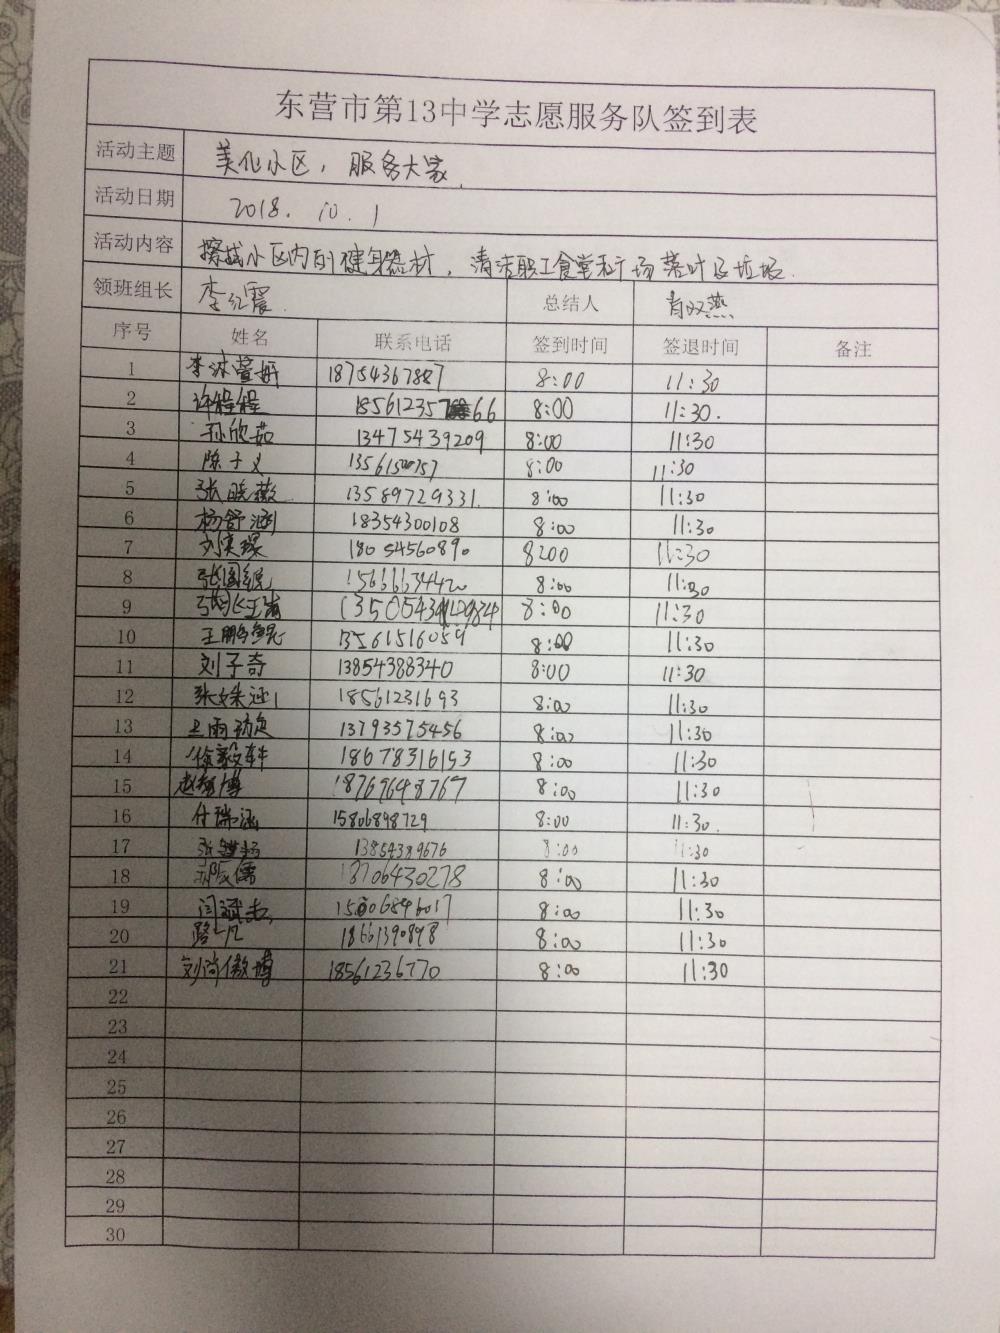 东营市第13中学志愿服务队签到表
活动主题 美化小区，服务大家.
活动日期 2018. 10. 1
活动内容 擦拭小区内的健身器材，清洁职工食堂和广场落叶及垃圾.
领班组长 李红震 总结人 肖双燕
序号 姓名 联系电话 签到时间 签退时间 备注
1 李沐萱妍 18754367887 8:00 11:30
2 许程程 8:00 11:30.
3 孙欣茹 13475439209 8:00 11:30
4 陈子义 8:00 11:30
5 张晓薇 13589729331. 8:00 11:30
6 杨舒涵 18354300108 8:00 11:30
7 18054560890 8:00 11:30
8 15666634420 8:00 11:30
9 8:00 11:30
10 王鹏鲲 13561516059 8:00 11:30
11 刘子奇 13854388340 8:00 11:30
12 18561231693 8:00 11:30
13 13793575456 8:00 11:30
14 徐毅轩 18678316153 8:00 11:30
15 18769648767 8:00 11:30
16 付瑞涵 15806898729 8:00 11:30.
17 13854389676 8:00 11:30
18 18706430278 8:00 11:30
19 闫斌志 8:00 11:30
20 路一凡 18661390898 8:00 11:30
21 刘尚傲博 18561236770 8:00 11:30
22
23
24
25
26
27
28
29
30